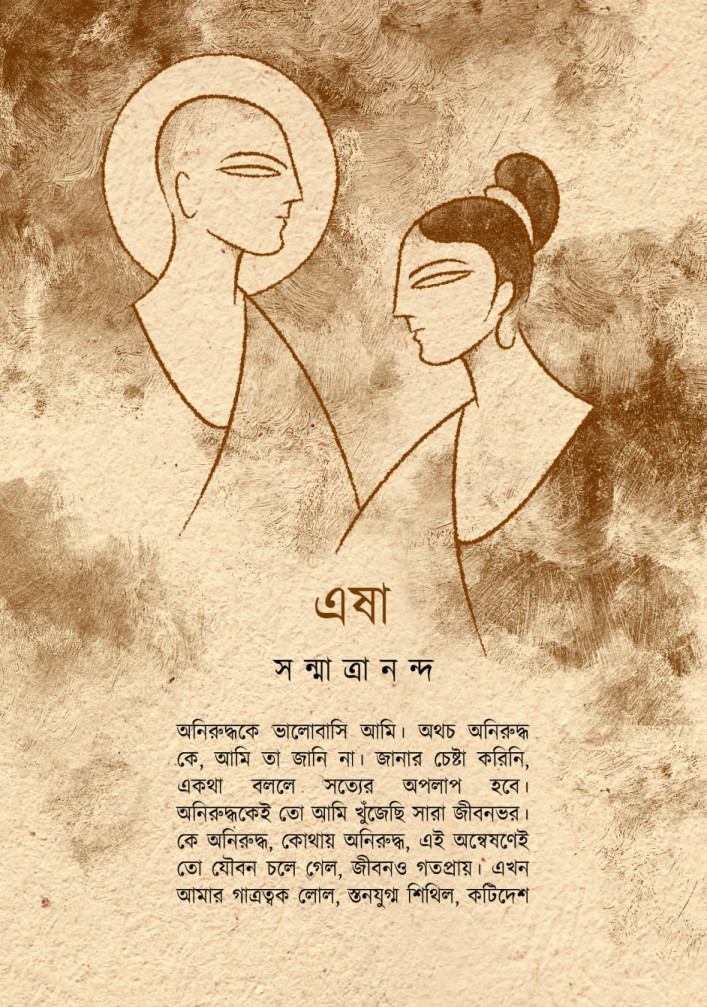 এষা
সন্মাত্রানন্দ
অনিরুদ্ধকে ভালোবাসি আমি। অথচ অনিরুদ্ধ
কে, আমি তা জানি না। জানার চেষ্টা করিনি,
একথা বললে সত্যের অপলাপ হবে।
অনিরুদ্ধকেই তো আমি খুঁজেছি সারা জীবনভর।
কে অনিরুদ্ধ, কোথায় অনিরুদ্ধ, এই অন্বেষণেই
তো যৌবন চলে গেল, জীবনও গতপ্রায়। এখন
আমার গাত্রত্বক লোল, স্তনযুগ্ম শিথিল, কটিদেশ